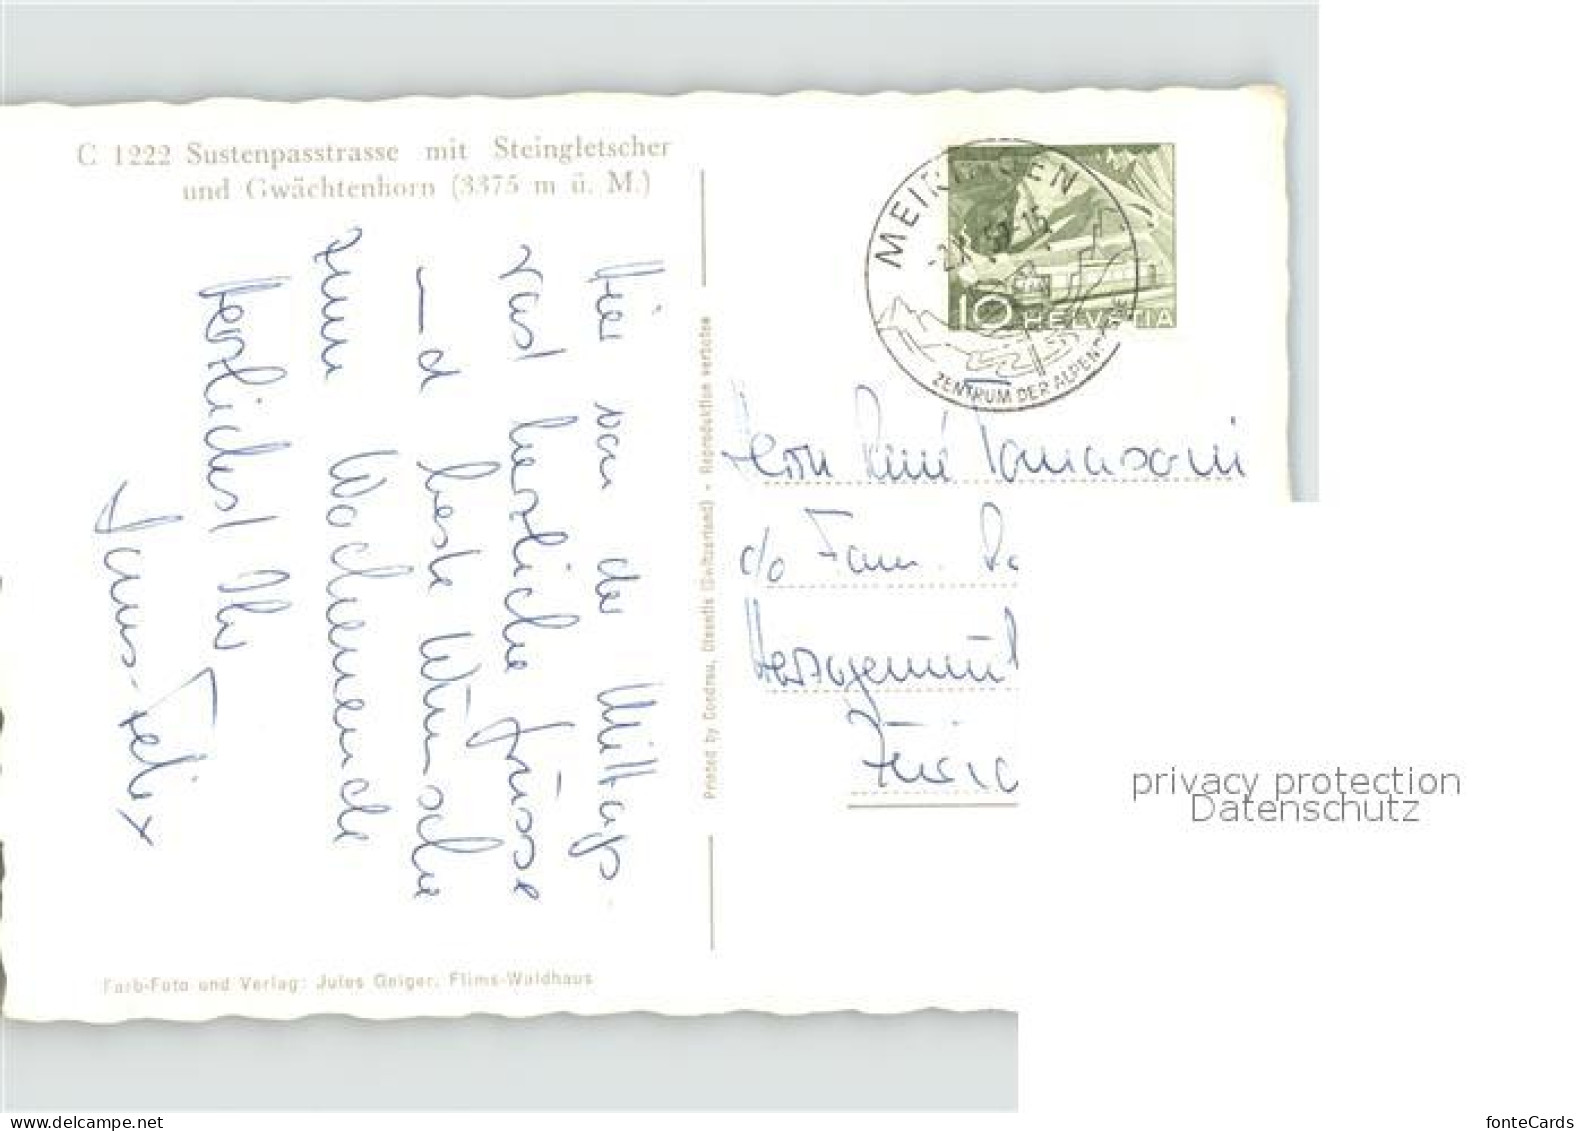 C 1222 Sustenpasstrasse mit Steingletscher
und Gwächtenhorn (3375 m ü. M.)
Hier von der Mittags-
rast herzliche Grüsse
und beste Wünsche
zum Wochenende
Herzlichst Ihr
Hans-Felix
Farb-Foto und Verlag: Jules Geiger, Flims-Waldhaus
Printed by Condrau, Disentis (Switzerland) - Reproduktion verboten
MEIRINGEN
ZENTRUM DER ALPENPÄSSE
10 HELVETIA
Herrn René Tomasoni
c/o Fam.
Züric
privacy protection
Datenschutz
fonteCards